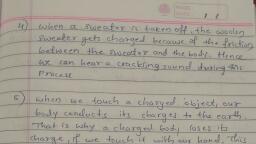 4) when a sweater is taken off, the woolen
sweater gets charged because of the friction
between the sweater and the body. Hence
we can hear a crackling sound during this
process
5) when we touch a charged object, our
body conducts its charges to the earth.
That is why a charged body loses its
charge, if we touch it with our hand, This